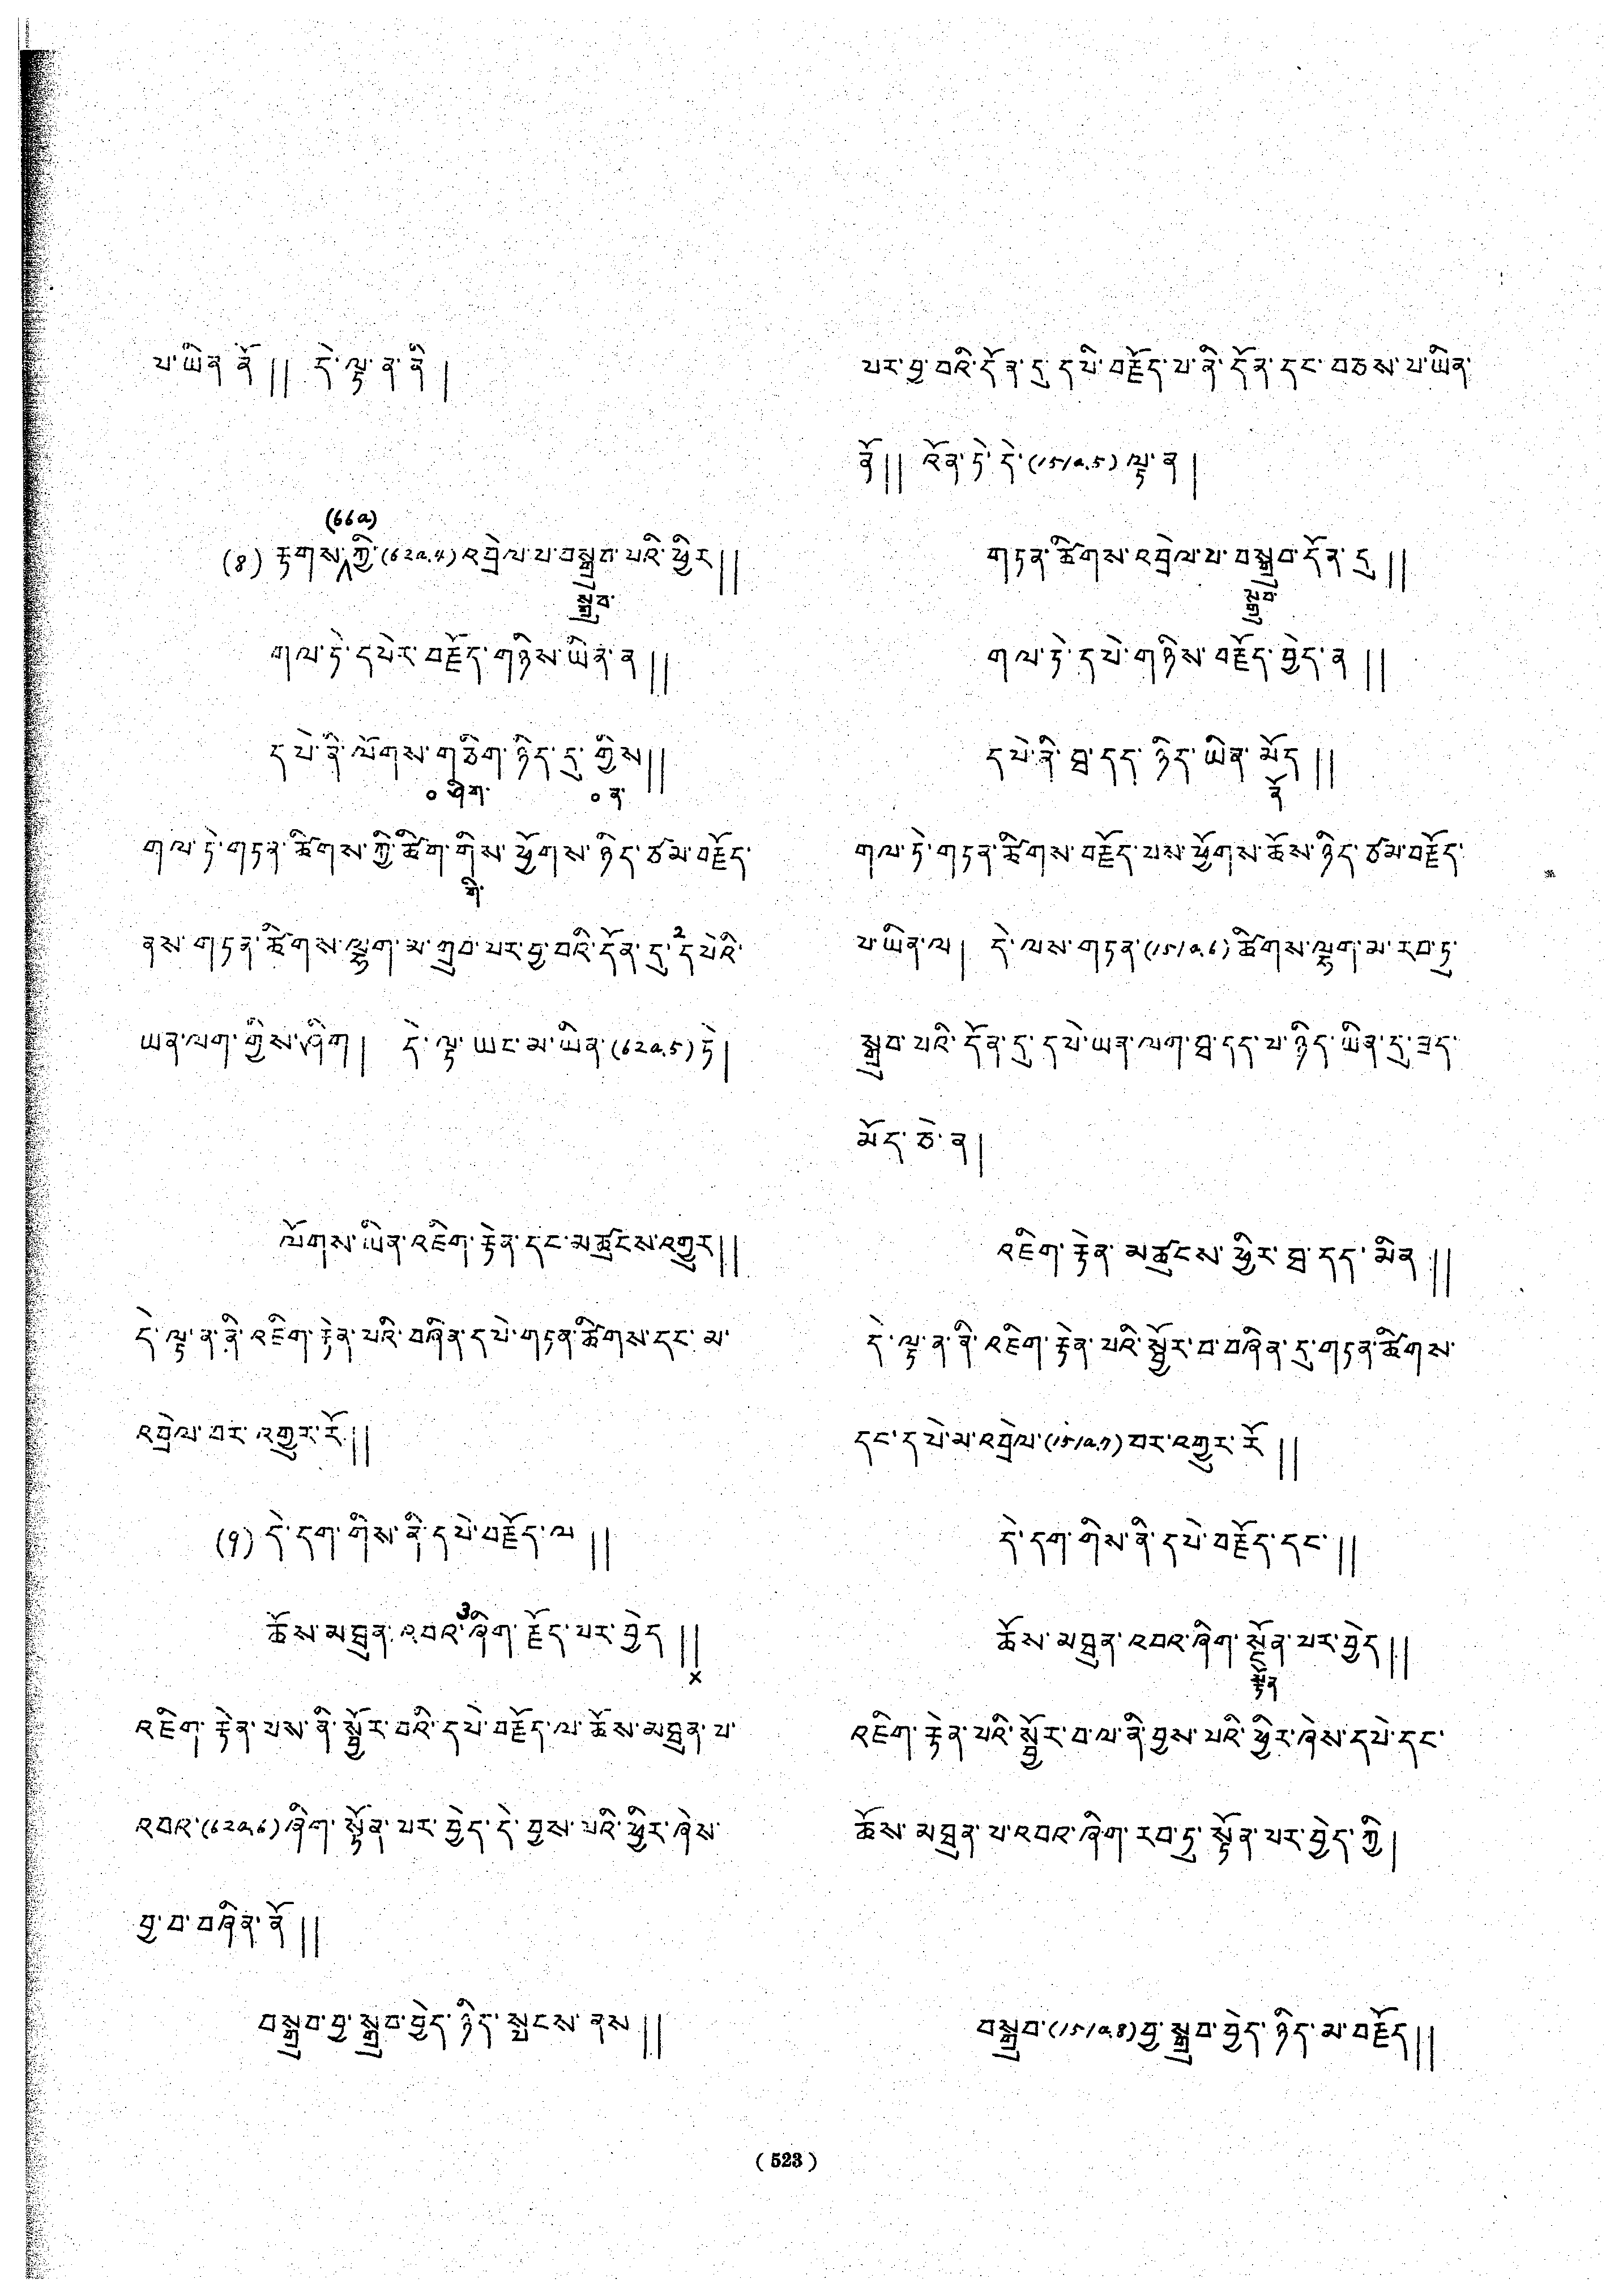 པ་ཡིན་ནོ།། དེ་ལྟ་ན་ནི།
(66a)
(8) རྟགས་ཀྱི་(62a.4)འབྲེལ་པ་བསྒྲབ་པའི་ཕྱིར།།
སྒྲུབ་
གལ་ཏེ་དཔེར་བརྗོད་གཉིས་ཡིན་ན།།
དཔེ་ནི་ལོགས་གཅིག་ཉིད་དུ་གྱིས།།
० ཤིག་ ० ན་
གལ་ཏེ་གཏན་ཚིགས་ཀྱི་ཚིག་གིས་ཕྱོགས་ཉིད་ཙམ་བརྗོད་
གི་
ནས་གཏན་ཚིགས་ལྷག་མ་གྲུབ་པར་བྱ་བའི་དོན་དུ་2དཔེའི་
ཡན་ལག་གྱིས་ཤིག། དེ་ལྟ་ཡང་མ་ཡིན་(62a.5)ཏེ།
ལོགས་ཡིན་འཇིག་རྟེན་དང་མཚུངས་འགྱུར།།
དེ་ལྟ་ན་ནི་འཇིག་རྟེན་པའི་བཞིན་དཔེ་གཏན་ཚིགས་དང་མ་
འབྲེལ་བར་འགྱུར་རོ།།
(9) དེ་དག་གིས་ནི་དཔེ་བརྗོད་ལ།།
ཆོས་མཐུན་འབའ་3ཞིག་རྗོད་པར་བྱེད།།
×
འཇིག་རྟེན་པས་ནི་སྦྱོར་བའི་དཔེ་བརྗོད་ལ་ཆོས་མཐུན་པ་
འབའ་(62a.6)ཞིག་སྟོན་པར་བྱེད་དེ་བྱས་པའི་ཕྱིར་ཞེས་
བྱ་བ་བཞིན་ནོ།།
བསྒྲབ་བྱ་སྒྲུབ་བྱེད་ཉིད་སྤངས་ནས།།
པར་བྱ་བའི་དོན་དུ་དཔེ་བརྗོད་པ་ནི་དོན་དང་བཅས་པ་ཡིན་
ནོ།། འོན་ཏེ་དེ་(151a.5)ལྟ་ན།
གཏན་ཚིགས་འབྲེལ་པ་བསྒྲབ་དོན་དུ།།
སྒྲུབ་
གལ་ཏེ་དཔེ་གཉིས་བརྗོད་བྱེད་ན།།
དཔེ་ནི་ཐ་དད་ཉིད་ཡིན་མོད།།
ནོ
གལ་ཏེ་གཏན་ཚིགས་བརྗོད་པས་ཕྱོགས་ཆོས་ཉིད་ཙམ་བརྗོད་
པ་ཡིན་ལ། དེ་ལས་གཏན་(151a.6)ཚིགས་ལྷག་མ་རབ་ཏུ་
སྒྲུབ་པའི་དོན་དུ་དཔེ་ཡན་ལག་ཐ་དད་པ་ཉིད་ཡིན་དུ་ཟད་
མོད་ཅེ་ན།
འཇིག་རྟེན་མཚུངས་ཕྱིར་ཐ་དད་མིན།།
དེ་ལྟ་ན་ནི་འཇིག་རྟེན་པའི་སྦྱོར་བ་བཞིན་དུ་གཏན་ཚིགས་
དང་དཔེ་མ་འབྲེལ་(151a.7)བར་འགྱུར་རོ།།
དེ་དག་གིས་ནི་དཔེ་བརྗོད་དང་།།
ཆོས་མཐུན་འབའ་ཞིག་སྔོན་པར་བྱེད།།
སྟོན
འཇིག་རྟེན་པའི་སྦྱོར་བ་ལ་ནི་བྱས་པའི་ཕྱིར་ཞེས་དཔེ་དང་
ཆོས་མཐུན་པ་འབའ་ཞིག་རབ་ཏུ་སྟོན་པར་བྱེད་ཀྱི།
བསྒྲུབ་(151a.8)བྱ་སྒྲུབ་བྱེད་ཉིད་མ་བརྗོད།།
( 523 )